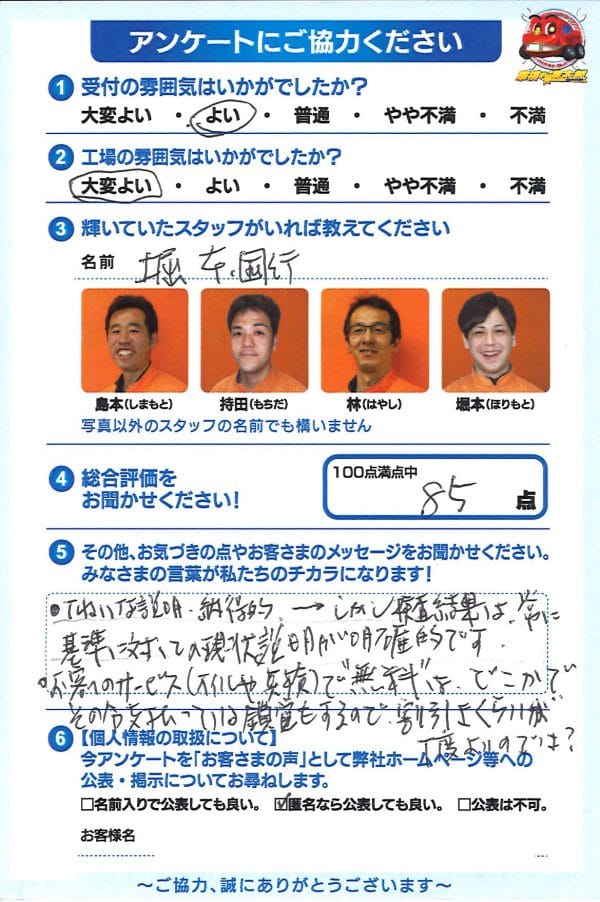 アンケートにご協力ください
1 受付の雰囲気はいかがでしたか?
大変よい ・ よい ・ 普通 ・ やや不満 ・ 不満
2 工場の雰囲気はいかがでしたか?
大変よい ・ よい ・ 普通 ・ やや不満 ・ 不満
3 輝いていたスタッフがいれば教えてください
名前 堀本国行
島本(しまもと) 持田(もちだ) 林(はやし) 堀本(ほりもと)
写真以外のスタッフの名前でも構いません
4 総合評価を
お聞かせください!
100点満点中
85 点
5 その他、お気づきの点やお客さまのメッセージをお聞かせください。
みなさまの言葉が私たちのチカラになります!
●ていねいな説明・納得的 → しかし 結果は、常に
基準に対しての現状説明が明確的です
お客へのサービス(オイルや点検)で"無料"は、どこかで
その分支払っている錯覚もするので、割引 くらいが
丁度よいのでは?
6 【個人情報の取扱について】
今アンケートを「お客さまの声」として弊社ホームページ等への
公表・掲示についてお尋ねします。
□名前入りで公表しても良い。 ☑匿名なら公表しても良い。 □公表は不可。
お客様名
~ご協力、誠にありがとうございます~